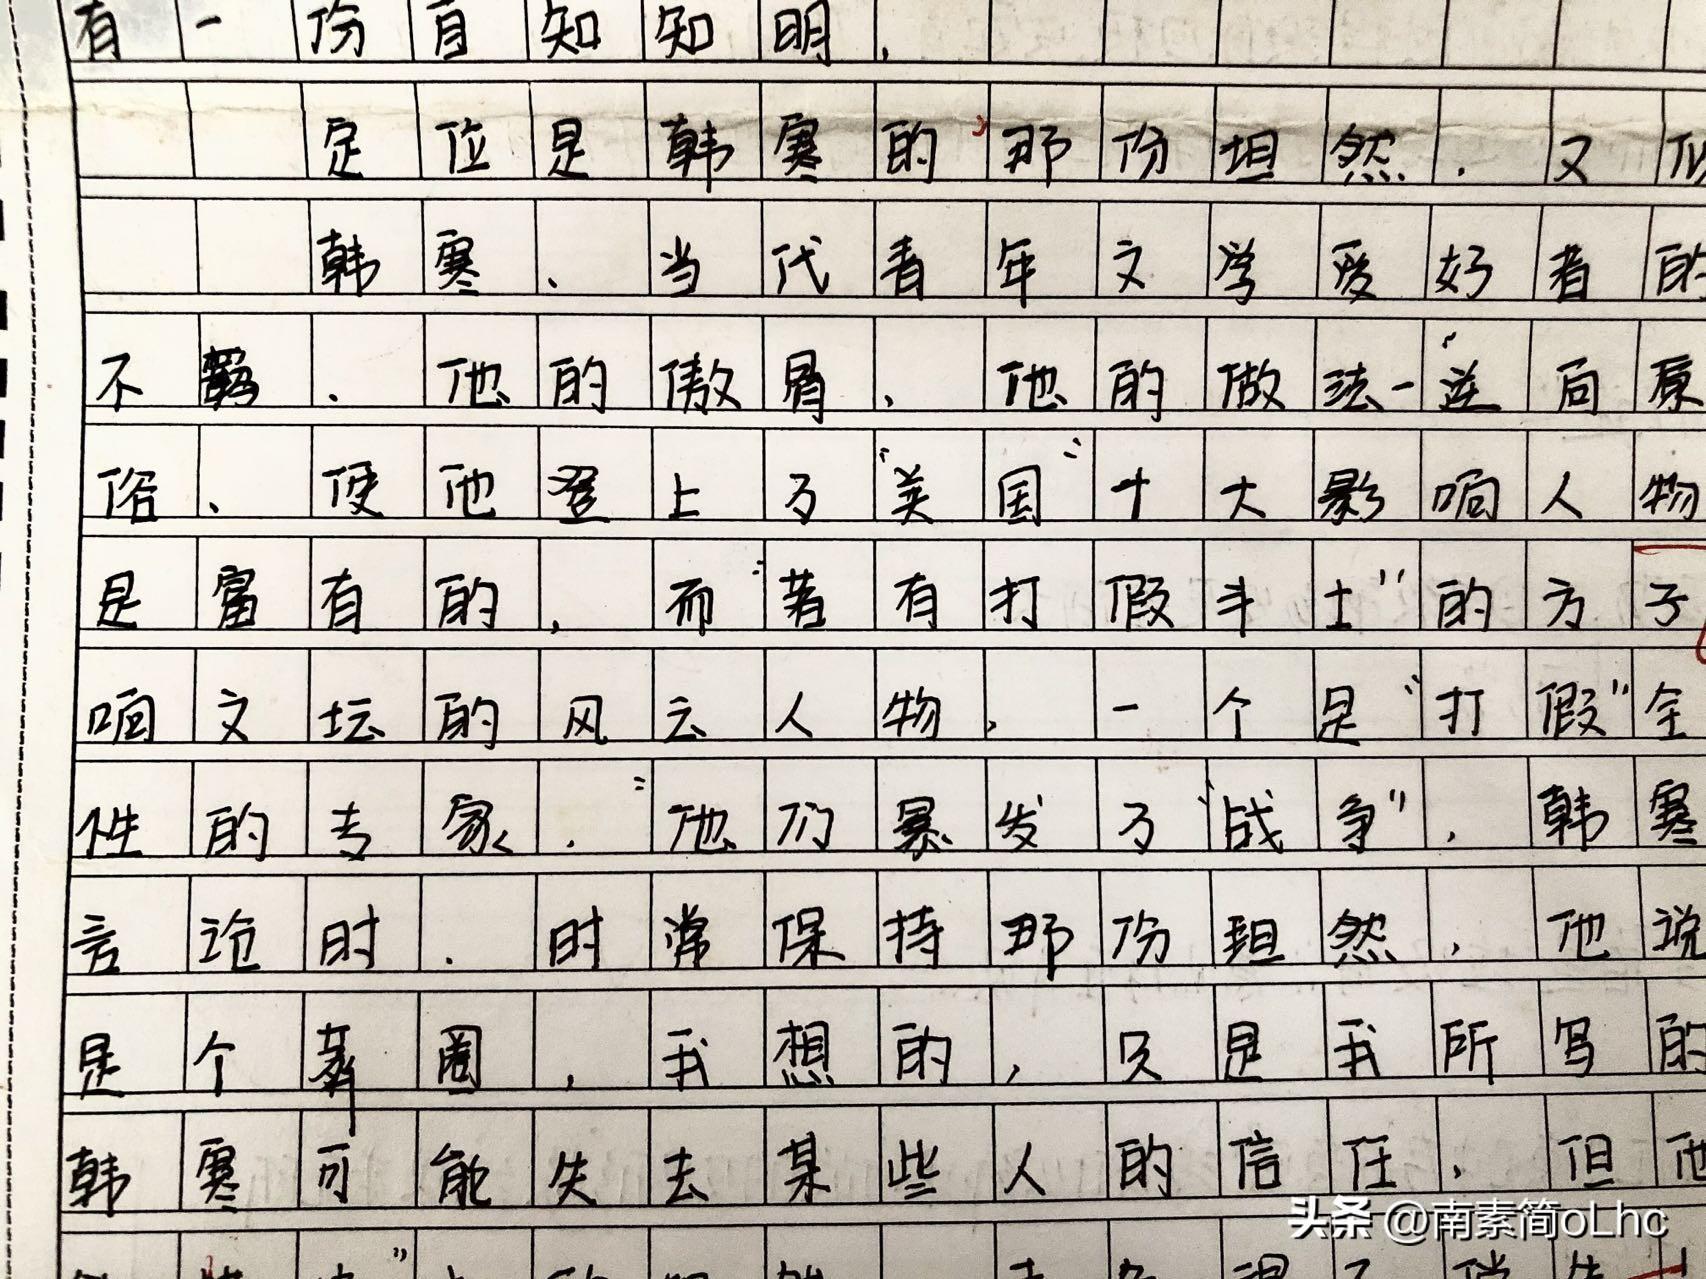 有一份自知知明，
定位是韩寒的那份坦然．又似
韩寒、当代青年文学爱好者的
不羁．他的傲骨，他的做法一连向原
俗、使他登上了“美国”十大影响人物
是富有的，而“著有打假斗士”的方子
响文坛的风云人物，一个是“打假”全
性的专家．“他们暴发了“战争”，韩寒
言论时．时常保持那份坦然，他说
是个圈，我想的，只是我所写的
韩寒可能失去某些人的信任，但他
头条 @南素简oLhc